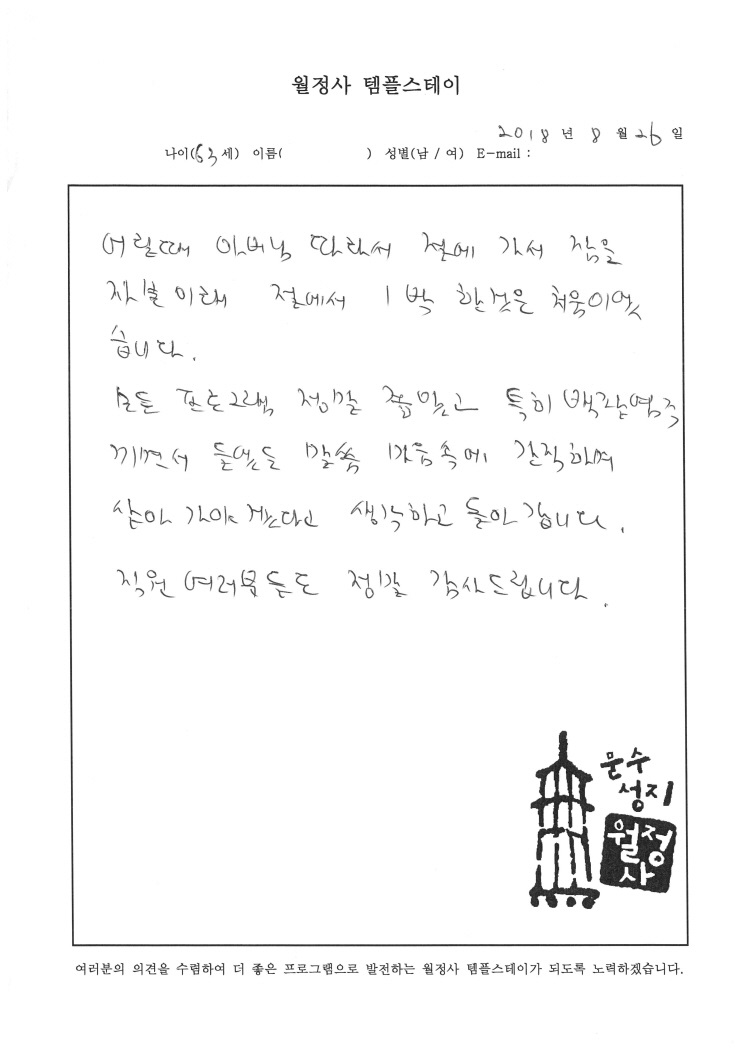 월정사 템플스테이
2018 년 8 월 26 일
나이(63세) 이름( ) 성별(남 / 여) E-mail :
어릴때 아버님 따라서 절에 가서 잠을
자본 이래 절에서 1박 한것은 처음이었
습니다.
모든 프로그램 정말 좋았고 특히 백팔염주
끼면서 들었든 말씀 마음속에 간직하며
살아 가야 겠다고 생각하고 돌아 갑니다.
직원 여러분들도 정말 감사드립니다.
문수
성지
월정
사
여러분의 의견을 수렴하여 더 좋은 프로그램으로 발전하는 월정사 템플스테이가 되도록 노력하겠습니다.